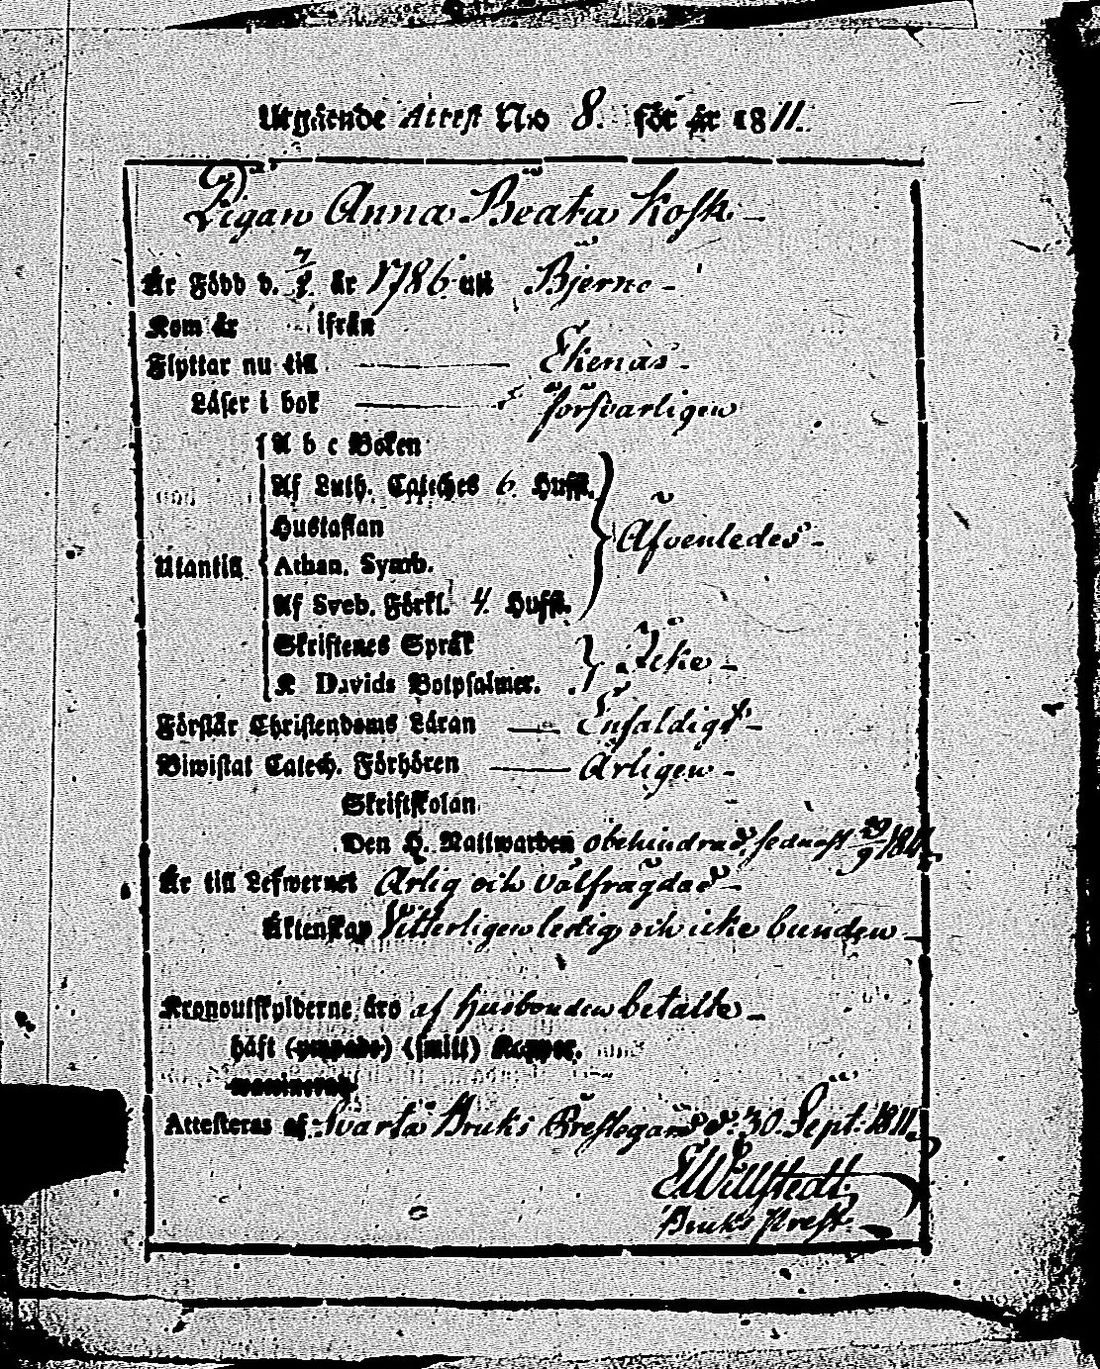 Utgående Attest N:o 8. för år 1811.
Pigan Anna Beata Kosk.
Är Född d. 7/8 år 1786 uti Bjerno
Kom år ifrån
Flyttar nu till Ekenäs
Läser i bok försvarligen
A b c Boken
Af Luth. Catches 6. Huffst.
Hustaflan
Utantill Athan. Symb. Äfvenledes
Af Sveb. Förkl. 4. Huffst.
Skriftenes Språk
K Davids Botpsalmer. Icke
Förstår Christendoms Läran Enfaldigt
Biwistat Catech. Förhören Årligen
Skriftskolan
Den H. Nattwarden obehindrad, sednast 29/9 1811
Är till Lefwernet Ärlig och välfrägdad
Äktenskap Vitterligen ledig och icke bunden
Kronoutskylderne äro af Husbonden betalte
haft (smitt) Koppor.
Attesteras af Svartå Bruks Prestegård d. 30. Sept: 1811.
Willstedt
Bruks Prest